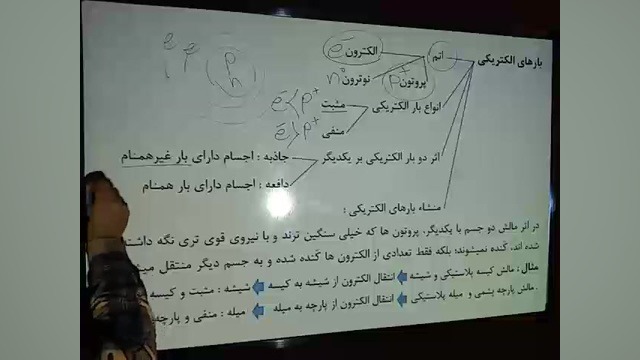 بارهای الکتریکی
اتم
الکترون e⁻
پروتون p⁺
نوترون n°
e e p n
انواع بار الکتریکی
مثبت e⁻ < p⁺
منفی e⁻ > p⁺
اثر دو بار الکتریکی بر یکدیگر
جاذبه : اجسام دارای بار غیرهمنام
دافعه : اجسام دارای بار همنام
منشاء بارهای الکتریکی :
در اثر مالش دو جسم با یکدیگر، پروتون ها که خیلی سنگین ترند و با نیروی قوی تری نگه داشته
شده اند، کنده نمیشوند؛ بلکه فقط تعدادی از الکترون ها کنده شده و به جسم دیگر منتقل
مثال : مالش کیسه پلاستیکی و شیشه انتقال الکترون از شیشه به کیسه شیشه : مثبت و کیسه
مالش پارچه پشمی و میله پلاستیکی انتقال الکترون از پارچه به میله میله : منفی و پارچه